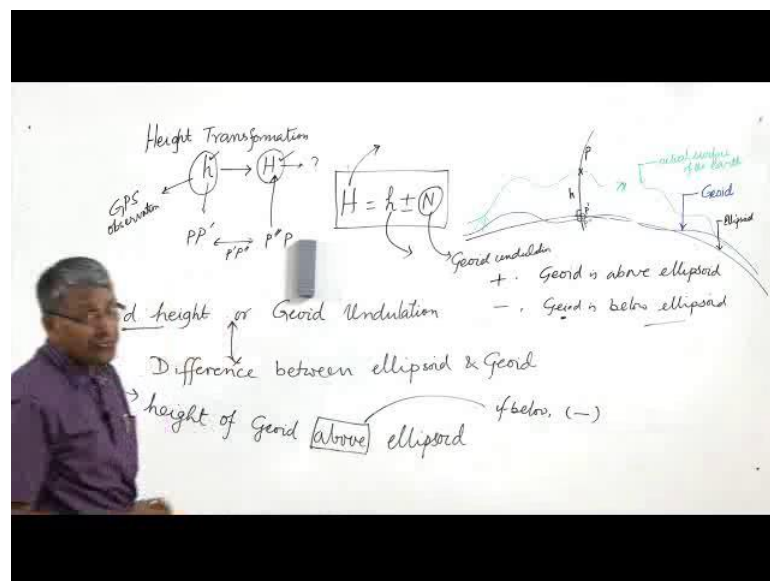 Height Transformation
h → H → ?
GPS
observation
PP' ↔ P"P
P'P"
H = h ± N
Geoid undulation
P
h
P'
actual surface
of the earth
Geoid
Ellipsoid
+ . Geoid is above ellipsoid
- . Geoid is below ellipsoid
d height or Geoid Undulation
Difference between ellipsoid & Geoid
→ height of Geoid above ellipsoid
if below, (-)